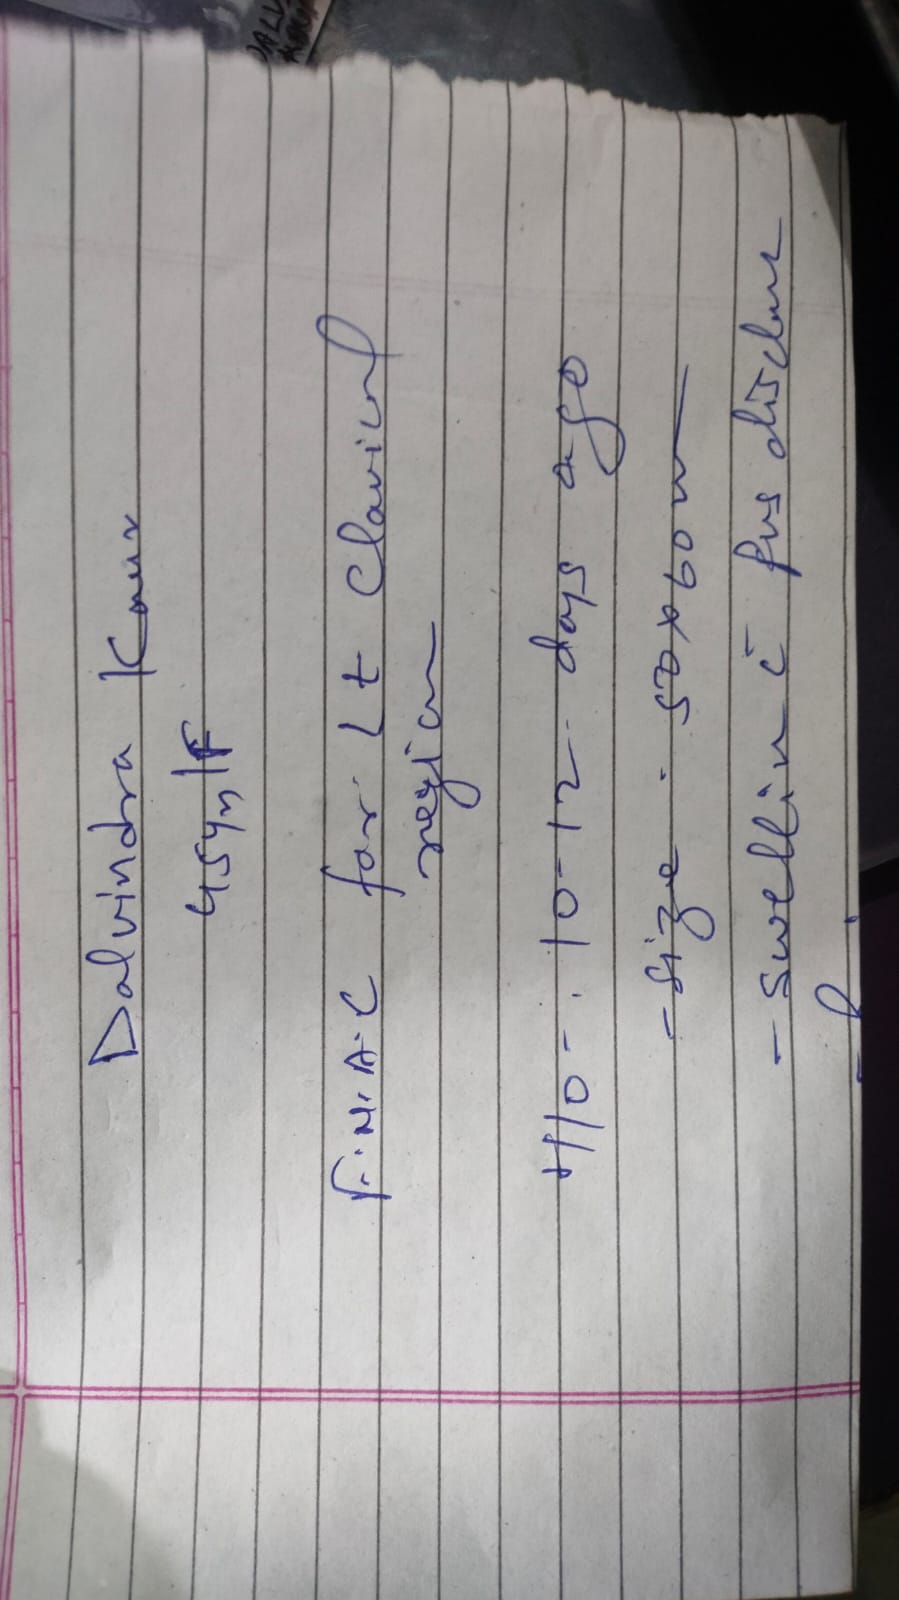 Dalvindra Kaur
45yrs/F
F.N.A.C for Lt Clavical
region
H/o - 10-12 days ago
- Size - 50x60 m
- Swellin c̄ pus discharge
DALV